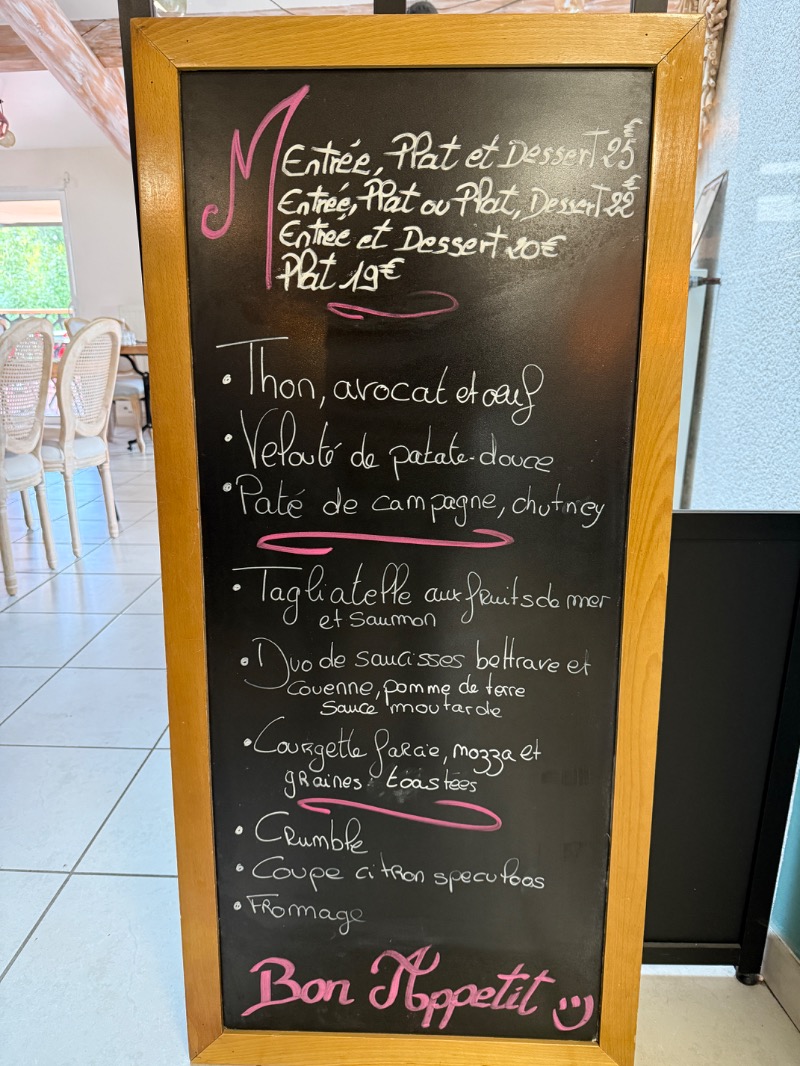 M
Entrée, Plat et Dessert 25€
Entrée, Plat ou Plat, Dessert 22€
Entrée et Dessert 20€
Plat 19€
• Thon, avocat et œuf
• Velouté de patate-douce
• Paté de campagne, chutney
• Tagliatelle aux fruits de mer
et saumon
• Duo de saucisses bettrave et
couenne, pomme de terre
sauce moutarde
• Courgette farcie, mozza et
graines toastées
• Crumble
• Coupe citron speculoos
• Fromage
Bon Appetit :)